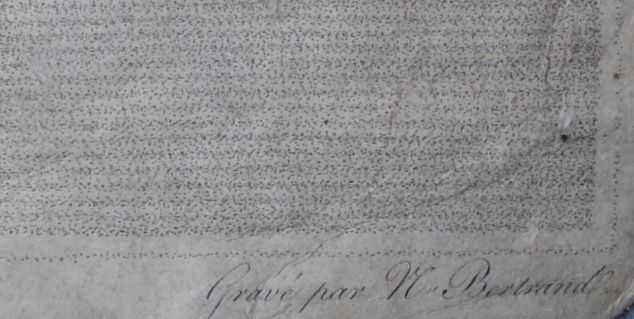 Gravé par Nl Bertrand